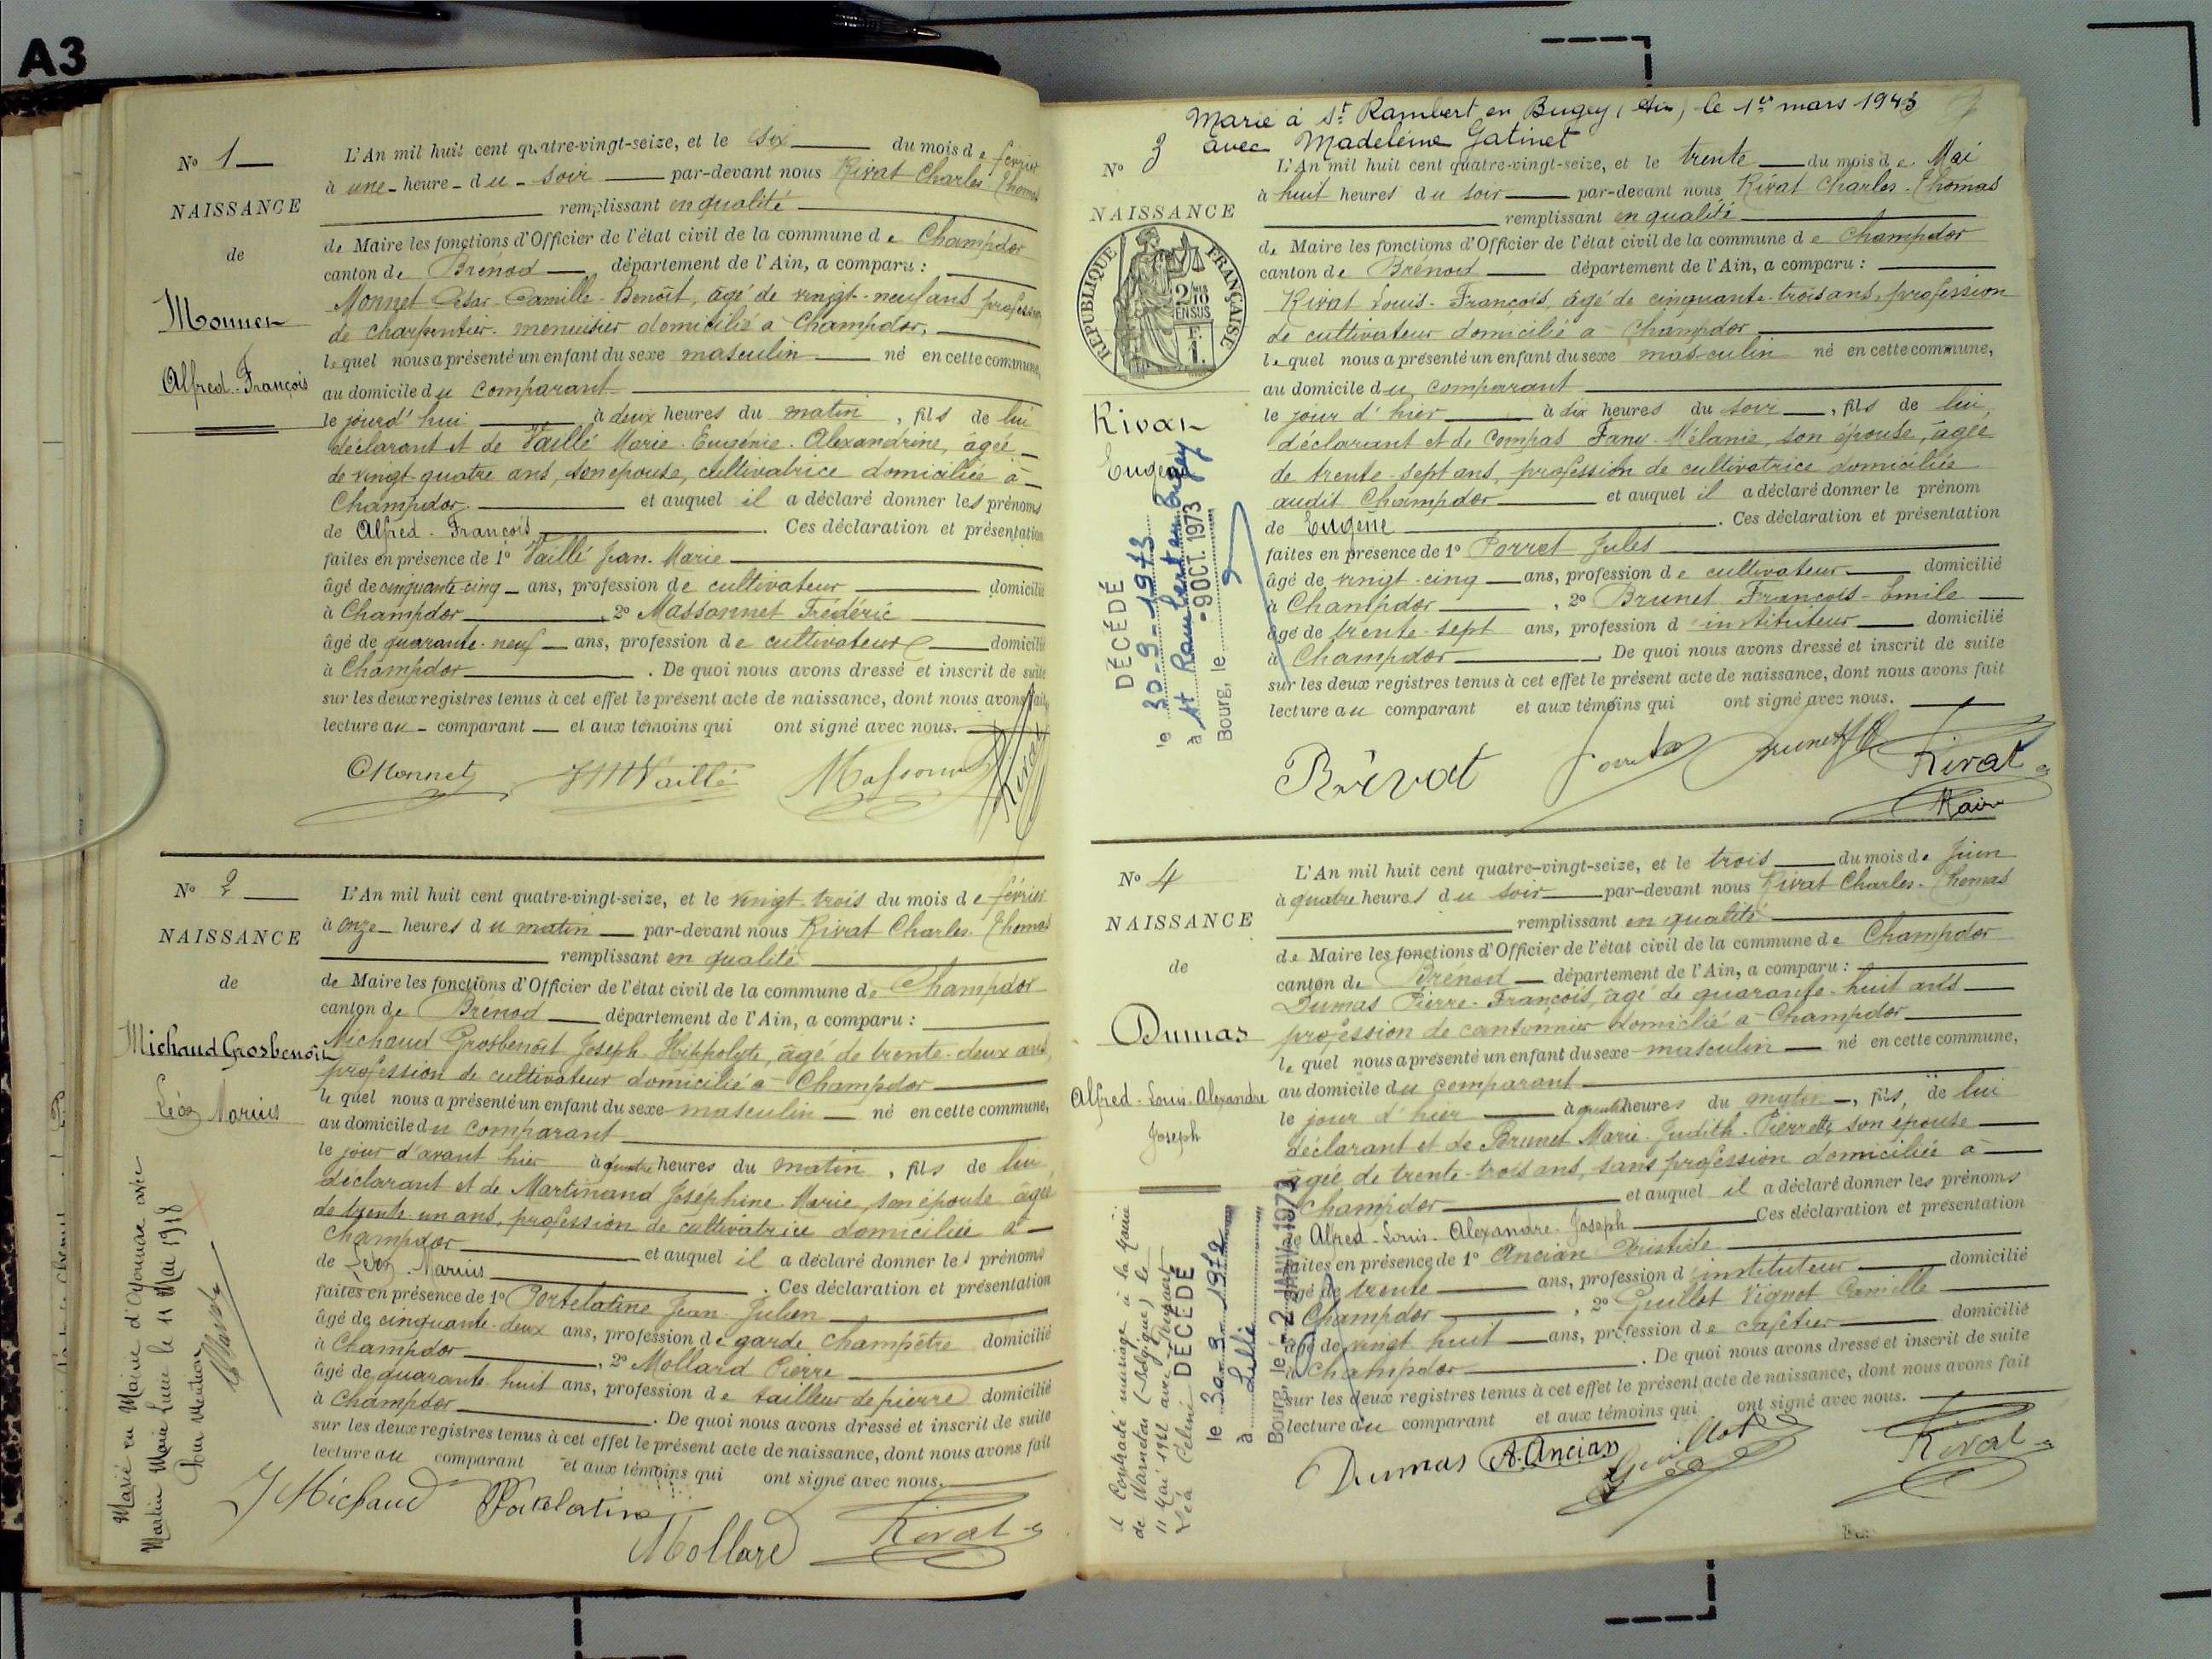 A3
N° 1
NAISSANCE
de
Monnet
Alfred-François
L'An mil huit cent quatre-vingt-seize, et le six du mois de février
à une heure du soir par-devant nous Rivat Charles Thomas
remplissant en qualité
de Maire les fonctions d'Officier de l'état civil de la commune de Champdor
canton de Brénod département de l'Ain, a comparu :
Monnet César-Camille-Benoît, âgé de vingt-neuf ans profession
de charpentier-menuisier domicilié à Champdor,
lequel nous a présenté un enfant du sexe masculin né en cette commune,
au domicile du comparant
le jourd'hui à deux heures du matin, fils de lui
déclarant et de Vaillé Marie-Eugénie-Alexandrine, âgée
de vingt quatre ans, son épouse, cultivatrice domiciliée à
Champdor. et auquel il a déclaré donner les prénoms
de Alfred-François. Ces déclaration et présentation
faites en présence de 1° Vaillé Jean-Marie
âgé de cinquante-cinq ans, profession de cultivateur domicilié
à Champdor, 2° Massonnet Frédéric
âgé de quarante-neuf ans, profession de cultivateur domicilié
à Champdor. De quoi nous avons dressé et inscrit de suite
sur les deux registres tenus à cet effet le présent acte de naissance, dont nous avons fait
lecture au comparant et aux témoins qui ont signé avec nous.
CMonnet JMVaillé Massonnet Rivat
N° 2
NAISSANCE
de
Michaud Grosbenoît
Léon Marius
Marié en Mairie d'Oyonnax avec
Martin Marie Lucie le 11 Mai 1918
Pour mention
L'An mil huit cent quatre-vingt-seize, et le vingt-trois du mois de février
à onze heures du matin par-devant nous Rivat Charles Thomas
remplissant en qualité
de Maire les fonctions d'Officier de l'état civil de la commune de Champdor
canton de Brénod département de l'Ain, a comparu :
Michaud Grosbenoît Joseph-Hippolyte, âgé de trente-deux ans,
profession de cultivateur domicilié à Champdor
lequel nous a présenté un enfant du sexe masculin né en cette commune,
au domicile du comparant
le jour d'avant hier à quatre heures du matin, fils de lui
déclarant et de Martinand Joséphine-Marie, son épouse âgée
de trente-un ans, profession de cultivatrice domiciliée à
Champdor et auquel il a déclaré donner les prénoms
de Léon Marius. Ces déclaration et présentation
faites en présence de 1° Portelatine Jean-Julien
âgé de cinquante-deux ans, profession de garde champêtre domicilié
à Champdor, 2° Mollard Pierre
âgé de quarante-huit ans, profession de tailleur de pierre domicilié
à Champdor. De quoi nous avons dressé et inscrit de suite
sur les deux registres tenus à cet effet le présent acte de naissance, dont nous avons fait
lecture au comparant et aux témoins qui ont signé avec nous.
J Michaud Portelatine Mollard Rivat
Marié à St Rambert en Bugey (Ain) le 1er mars 1943
avec Madeleine Gatinet
N° 3
NAISSANCE
RÉPUBLIQUE FRANÇAISE
2/10 EN SUS
F. 1.
Rivat
Eugène
DÉCÉDÉ
le 30-9-1973
à St Rambert en Bugey
Bourg, le -9 OCT. 1973
L'An mil huit cent quatre-vingt-seize, et le trente du mois de Mai
à huit heures du soir par-devant nous Rivat Charles-Thomas
remplissant en qualité
de Maire les fonctions d'Officier de l'état civil de la commune de Champdor
canton de Brénod département de l'Ain, a comparu :
Rivat Louis-François, âgé de cinquante-trois ans, profession
de cultivateur domicilié à Champdor
lequel nous a présenté un enfant du sexe masculin né en cette commune,
au domicile du comparant
le jour d'hier à dix heures du soir, fils de lui,
déclarant et de Compas Fany-Mélanie, son épouse, âgée
de trente-sept ans, profession de cultivatrice domiciliée
audit Champdor et auquel il a déclaré donner le prénom
de Eugène. Ces déclaration et présentation
faites en présence de 1° Porret Jules
âgé de vingt-cinq ans, profession de cultivateur domicilié
à Champdor, 2° Brunet François-Émile
âgé de trente-sept ans, profession d instituteur domicilié
à Champdor. De quoi nous avons dressé et inscrit de suite
sur les deux registres tenus à cet effet le présent acte de naissance, dont nous avons fait
lecture au comparant et aux témoins qui ont signé avec nous.
Rivat Porret Brunet Rivat
Maire
N° 4
NAISSANCE
de
Dumas
Alfred-Louis-Alexandre
Joseph
A contracté mariage à la Mairie
de Warneton (Belgique) le
11 Mai 1921 avec
Léa Céline
DÉCÉDÉ
le 30-9-1972
à Lille
Bourg, le -2 JANV. 1973
L'An mil huit cent quatre-vingt-seize, et le trois du mois de Juin
à quatre heures du soir par-devant nous Rivat Charles-Thomas
remplissant en qualité
de Maire les fonctions d'Officier de l'état civil de la commune de Champdor
canton de Brénod département de l'Ain, a comparu :
Dumas Pierre-François, âgé de quarante-huit ans
profession de cantonnier domicilié à Champdor
lequel nous a présenté un enfant du sexe masculin né en cette commune,
au domicile du comparant
le jour d'hier à quatre heures du matin, fils, de lui
déclarant et de Brunet Marie-Judith-Pierrette son épouse
âgée de trente-trois ans, sans profession domiciliée à
Champdor et auquel il a déclaré donner les prénoms
Alfred-Louis-Alexandre-Joseph Ces déclaration et présentation
faites en présence de 1° Ancian Aristide
âgé de trente ans, profession d instituteur domicilié
à Champdor, 2° Guillot Vignot Camille
âgé de vingt huit ans, profession de cafetier domicilié
à Champdor. De quoi nous avons dressé et inscrit de suite
sur les deux registres tenus à cet effet le présent acte de naissance, dont nous avons fait
lecture au comparant et aux témoins qui ont signé avec nous.
Dumas A. Ancian Guillot Rivat